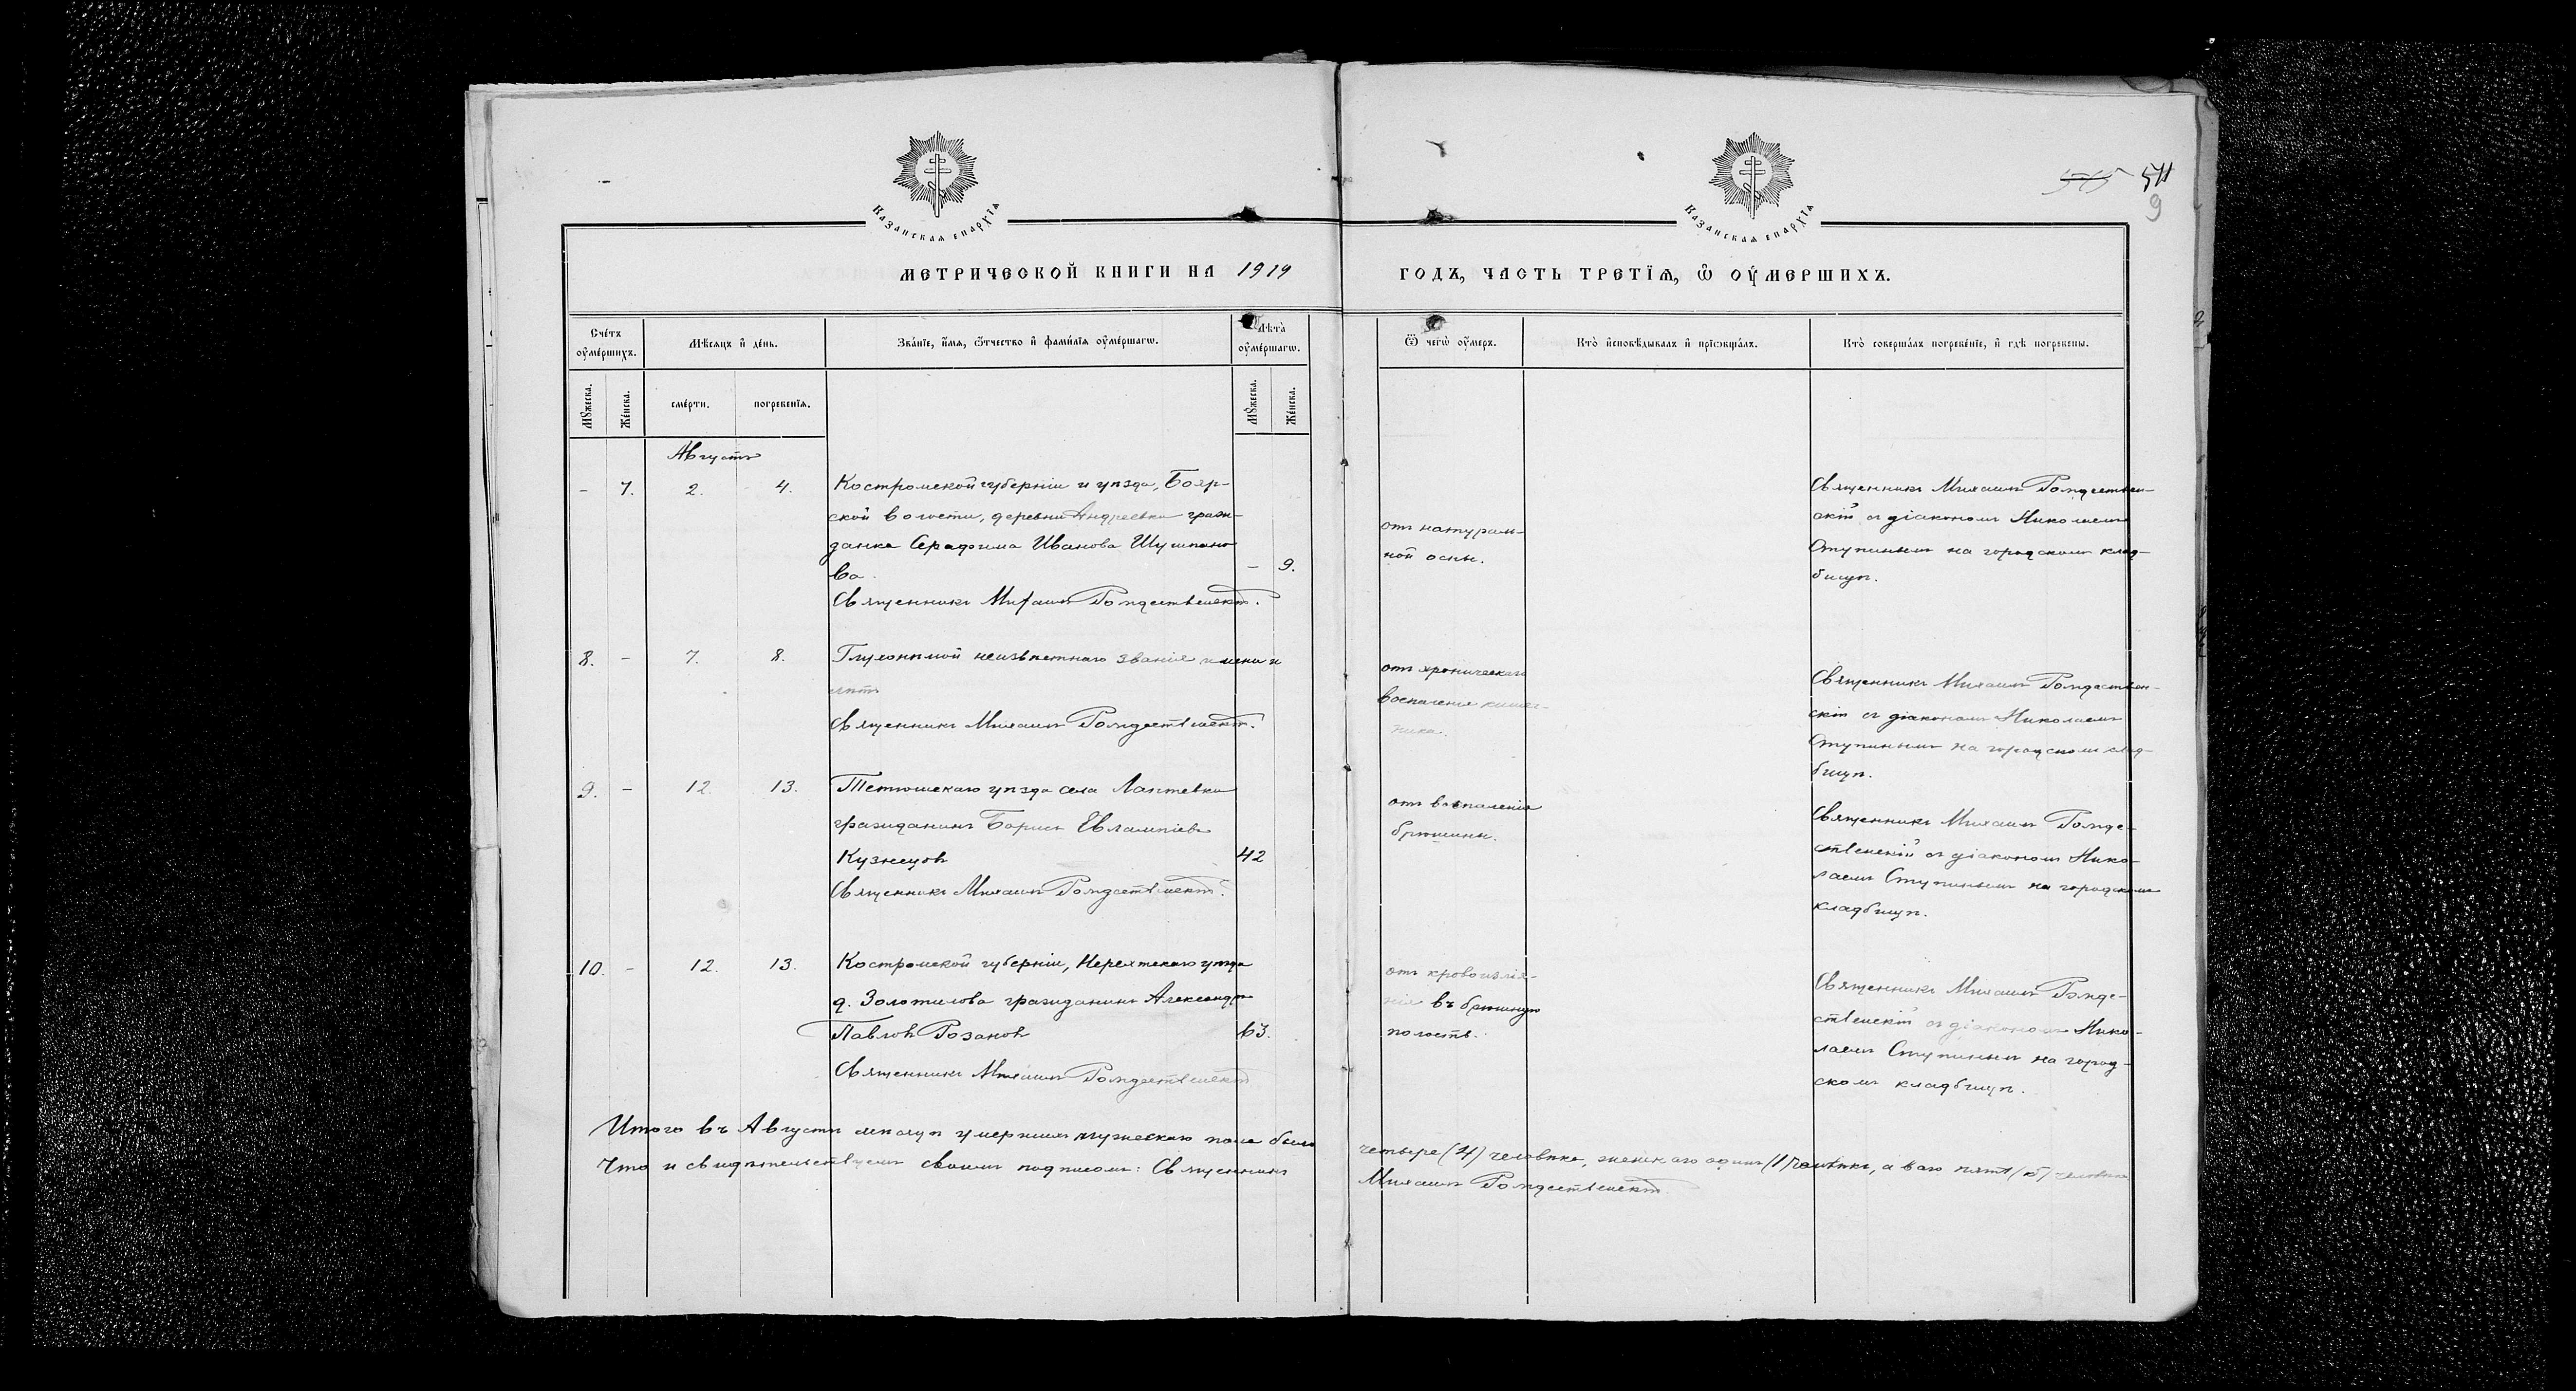 Казанская епархїѧ
Казанская епархїѧ
515 511
9
МЕТРИЧЕСКОЙ КНИГИ НА 1919 ГОДЪ, ЧАСТЬ ТРЕТЇѦ, Ѡ ОУМЕРШИХЪ.
Счетъ оумершихъ.
Мѣсяцъ и день.
Званїе, имя, отчество и фамилїя оумершагѡ.
Лѣта оумершагѡ.
Ѿ чегѡ оумеръ.
Кто исповѣдывалъ и прїѡбщалъ.
Кто совершалъ погребенїе, и гдѣ погребены.
Мꙋжеска.
Женска.
смерти.
погребенїя.
Мꙋжеска.
Женска.
Августъ
- 7. 2. 4.
Костромской губерніи и уѣзда, Бояр-
ской волости, деревни Андреевки граж-
данка Серафима Иванова Шушпано
ва.
- 9.
Священникъ Михаилъ Рождественскій.
отъ натураль-
ной оспы.
Священникъ Михаилъ Рождествен-
скій съ діакономъ Николаемъ
Ступинымъ на городскомъ клад-
бищѣ.
8. - 7. 8.
Глухонѣмой неизвѣстнаго званія имени и
лѣтъ
Священникъ Михаилъ Рождественскій.
отъ хроническаго
воспаленія кишеч-
ника.
Священникъ Михаилъ Рождествен-
скій съ діакономъ Николаемъ
Ступинымъ на городскомъ клад-
бищѣ.
9. - 12 13.
Тетюшскаго уѣзда села Лаптевки
гражданинъ Борисъ Евлампіевъ
Кузнецовъ 42
Священникъ Михаилъ Рождественскій.
отъ воспаленія
брюшины.
Священникъ Михаилъ Рожде-
ственскій съ діакономъ Нико-
лаемъ Ступинымъ на городскомъ
кладбищѣ.
10. - 12. 13.
Костромской губерніи, Нерехтскаго уѣзда
д. Золотилова гражданинъ Александръ
Павловъ Розановъ 63.
Священникъ Михаилъ Рождественскій
отъ кровоизлія-
нія въ брюшную
полость.
Священникъ Михаилъ Рожде-
ственскій съ діакономъ Нико-
лаемъ Ступинымъ на город-
скомъ кладбищѣ.
Итого въ Августѣ мѣсяцѣ умершихъ мужескаго пола было четыре (4) человѣка, женскаго одинъ (1) человѣкъ, а всего пять (5) человѣкъ
Что и свидѣтельствуемъ своимъ подписомъ: Священникъ Михаилъ Рождественскій